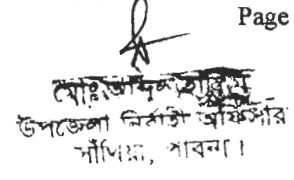 Page
মোঃ আব্দুল
উপজেলা নির্বাহী অফিসার
সাঁথিয়া, পাবনা।